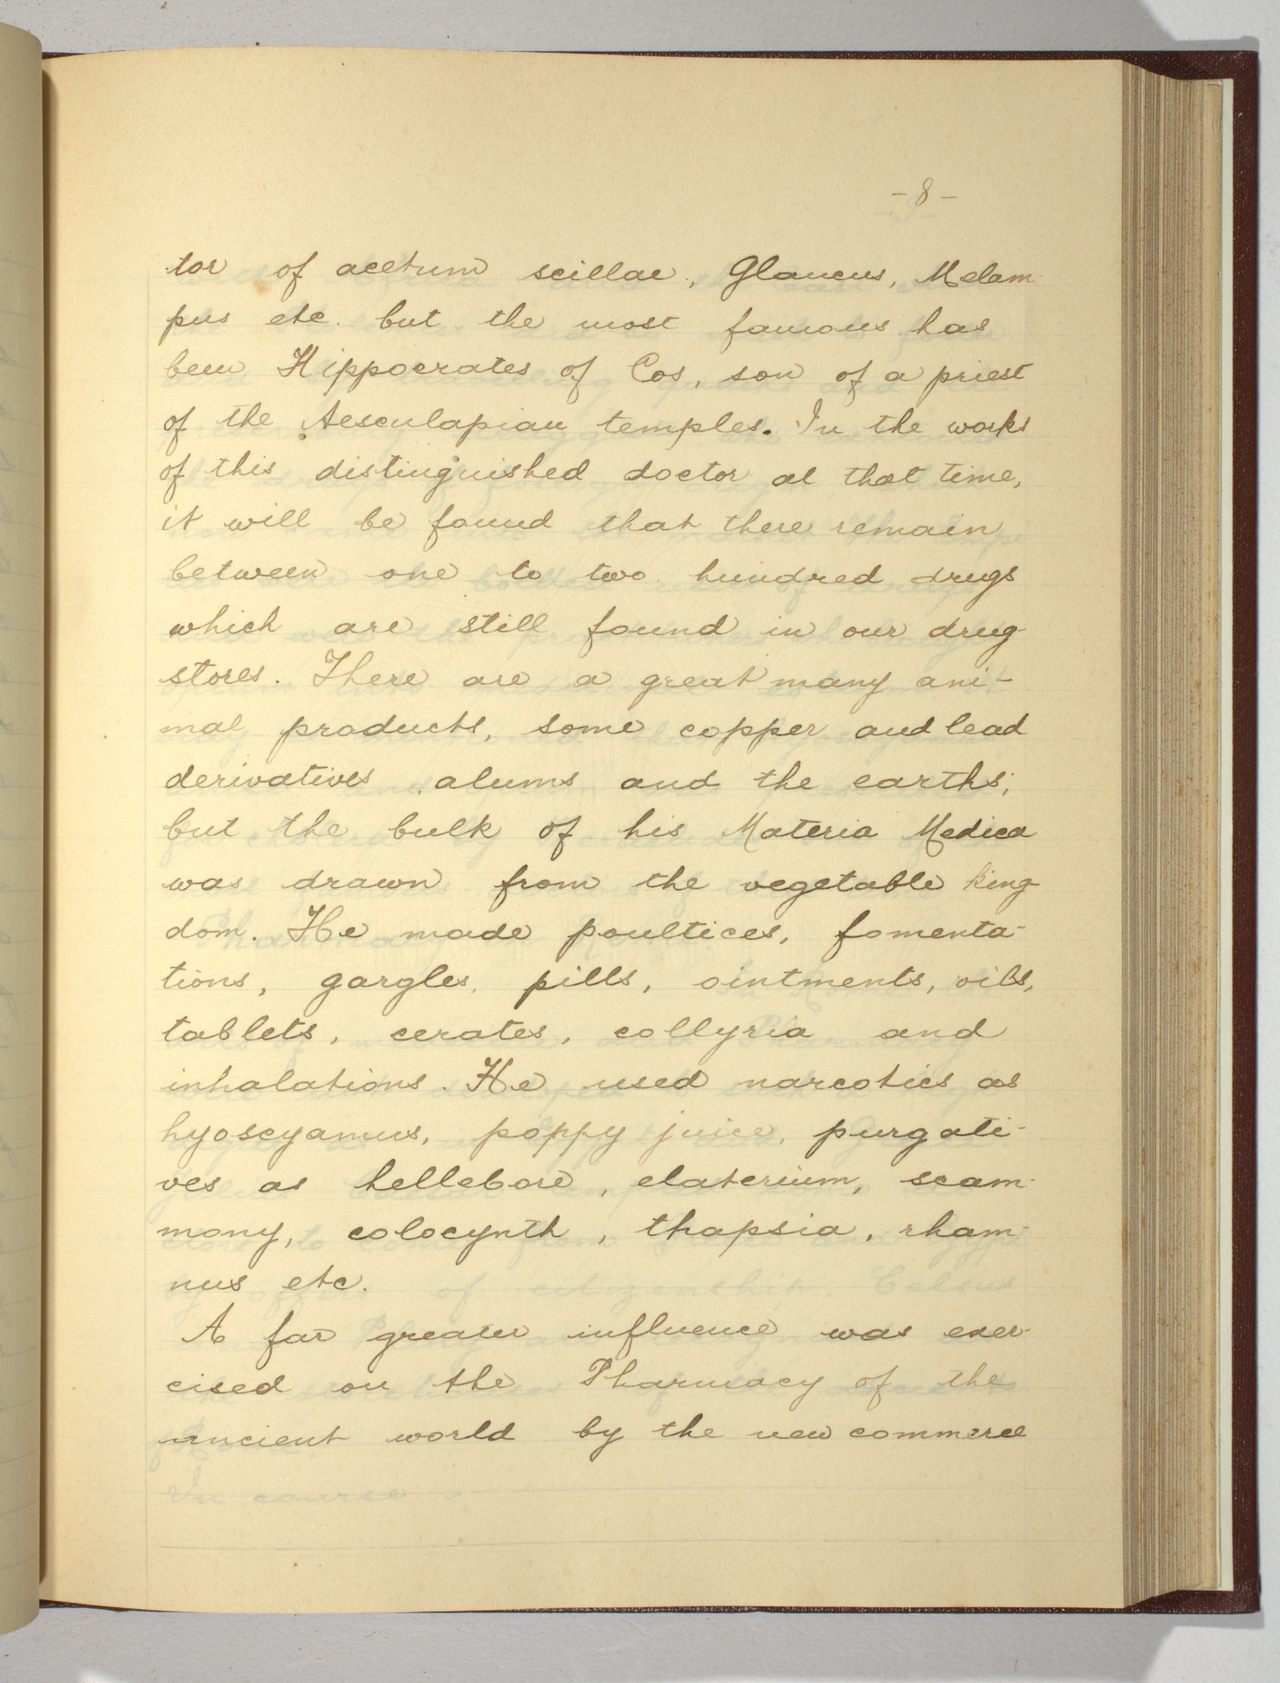 -8-
tor of acetum scillae, Glaucus, Melam
pus etc. but the most famous has
been Hippocrates of Cos, son of a priest
of the Aesculapian temples. In the works
of this distinguished doctor at that time,
it will be found that there remain
between one to two hundred drugs
which are still found in our drug
stores. There are a great many ani-
mal products, some copper and lead
derivatives, alums and the earths;
but the bulk of his Materia Medica
was drawn from the vegetable king-
dom. He made poultices, fomenta-
tions, gargles, pills, ointments, oils,
tablets, cerates, collyria and
inhalations. He used narcotics as
hyoscyamus, poppy juice, purgati-
ves as hellebore, elaterium, scam-
mony, colocynth, thapsia, rham-
nus etc.
A far greater influence was exer-
cised on the Pharmacy of the
ancient world by the new commerce